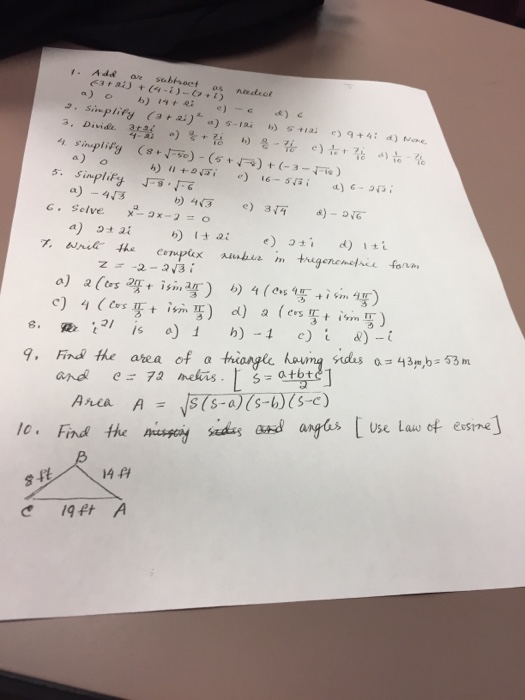 1. Add or subtract as needed
(-3+2i) + (4-i) - (7+i)
a) 0 b) 14+2i c) -6 d) 6
2. Simplify (3+2i)² a) 5-12i b) 5+12i c) 9+4i d) None
3. Divide (3+2i)/(4-2i) a) + 7i/10 b) - 7i/10 c) 1/10 + 7i/10 d) 1/10 - 7i/10
4. Simplify (8+√-50) - (5+ ) + (-3-√-18)
a) 0 b) 11+2√2i c) 16-5√3i d) 6-2√3i
5. Simplify √-8 · √-6
a) -4√3 b) 4√3 c) 3√4 d) -2√6
6. Solve x²-2x-2 = 0
a) 2±2i b) 1±2i c) 2±i d) 1±i
7. Write the complex number in trigonometric form
z = -2-2√3i
a) 2(cos 2π/3 + i sin 2π/3) b) 4(cos 4π/3 + i sin 4π/3)
c) 4(cos π/3 + i sin π/3) d) 2(cos π/3 + i sin π/3)
8. i²¹ is a) 1 b) -1 c) i d) -i
9. Find the area of a triangle having sides a = 43m, b = 53m
and c = 72 metres. [S = (a+b+c)/2]
Area A = √S(S-a)(S-b)(S-c)
10. Find the missing sides and angles [Use Law of cosine]
B
8 ft 14 ft
C 19 ft A